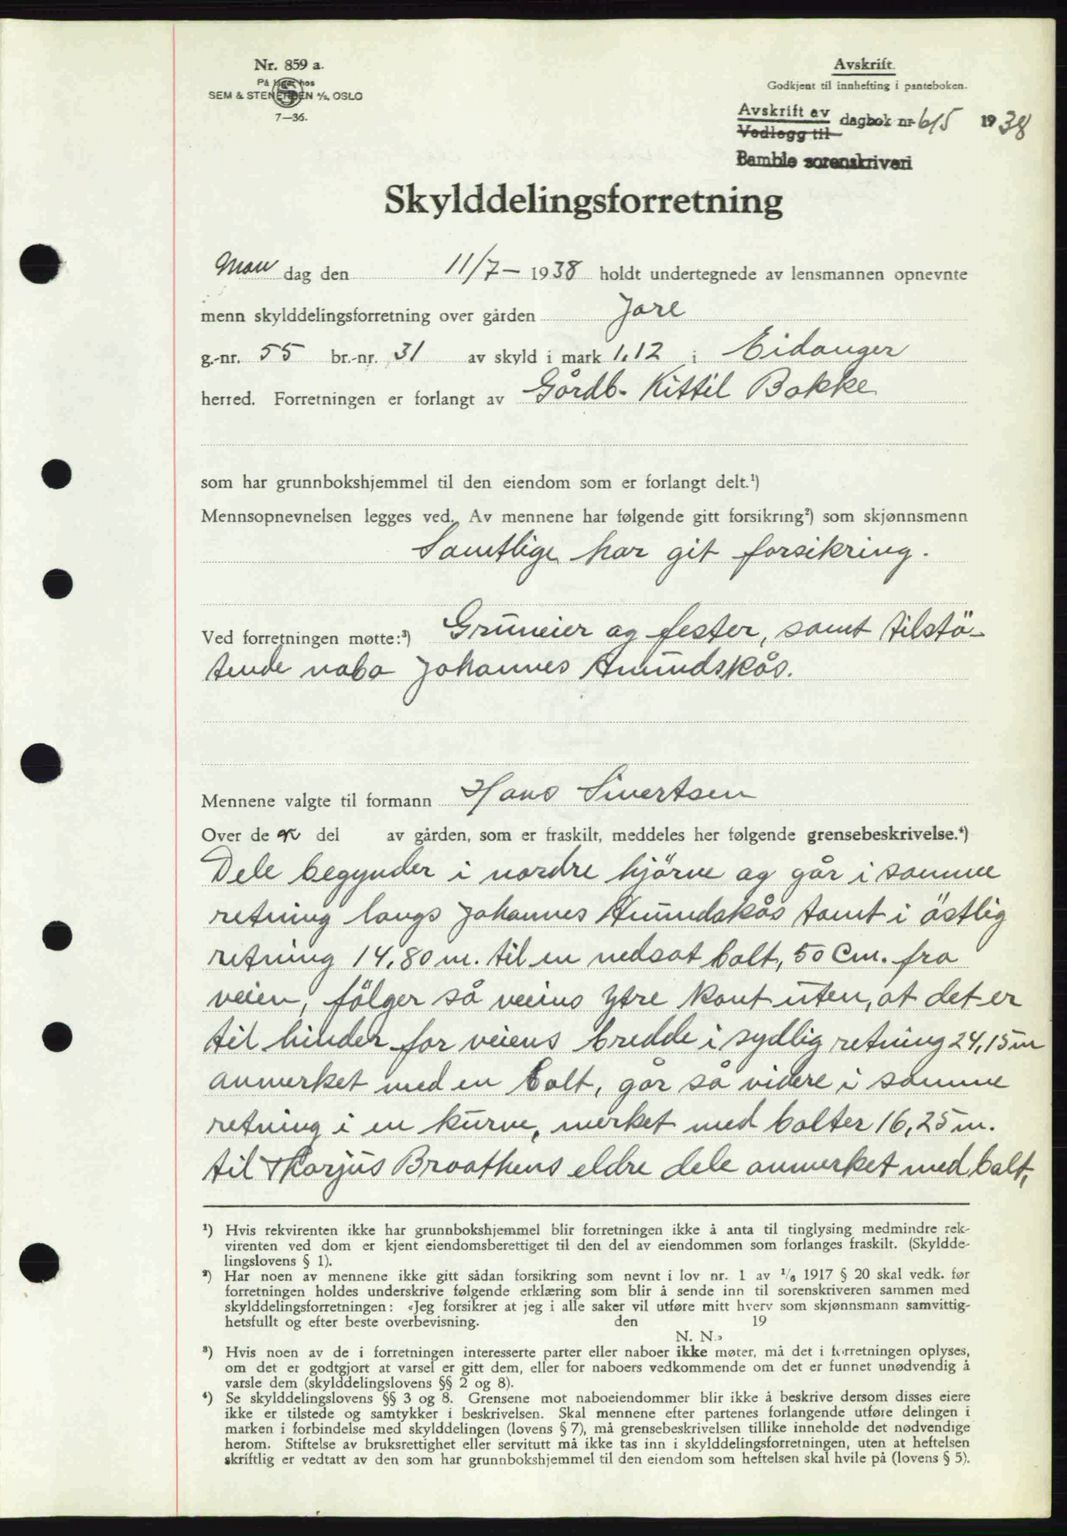 Nr. 859 a.
På lager hos
SEM & STENERSEN A/S, OSLO
7—36.
Avskrift.
Godkjent til innhefting i panteboken.
Avskrift av
Vedlegg til
dagbok nr 615 1938
Bamble sorenskriveri
Skylddelingsforretning
Man dag den 11/7- 1938 holdt undertegnede av lensmannen opnevnte
menn skylddelingsforretning over gården Jore
g.-nr. 55 br.-nr. 31 av skyld i mark 1.12 i Eidanger
herred. Forretningen er forlangt av Gårdb. Kittil Bakke
som har grunnbokshjemmel til den eiendom som er forlangt delt.¹)
Mennsopnevnelsen legges ved. Av mennene har følgende gitt forsikring²) som skjønnsmenn
Samtlige har git forsikring.
Ved forretningen møtte:³) Gruneier og fester, samt tilstö-
tende nabo Johannes Amundskås.
Mennene valgte til formann Hans Sivertsen
Over de n del av gården, som er fraskilt, meddeles her følgende grensebeskrivelse.⁴)
Dele begynder i nordre hjörne og går i samme
retning langs Johannes Amundskås tomt i östlig
retning 14,80 m. til en nedsat bolt, 50 Cm. fra
veien, fölger så veiens ytre kant uten, at det er
til hinder for veiens bredde i sydlig retning 24,15 m
anmerket med en bolt, går så videre i samme
retning i en kurve, merket med bolter 16,25 m.
til Thorjus Braathens eldre dele anmerket med bolt,
¹) Hvis rekvirenten ikke har grunnbokshjemmel blir forretningen ikke å anta til tinglysing medmindre rek-
virenten ved dom er kjent eiendomsberettiget til den del av eiendommen som forlanges fraskilt. (Skyldde-
lingslovens § 1).
²) Har noen av mennene ikke gitt sådan forsikring som nevnt i lov nr. 1 av 1/6 1917 § 20 skal vedk. før
forretningen holdes underskrive følgende erklæring som blir å sende inn til sorenskriveren sammen med
skylddelingsforretningen: «Jeg forsikrer at jeg i alle saker vil utføre mitt hverv som skjønnsmann samvittig-
hetsfullt og efter beste overbevisning. den 19
N. N.»
³) Hvis noen av de i forretningen interesserte parter eller naboer ikke møter, må det i forretningen oplyses,
om det er godtgjort at varsel er gitt dem, eller for naboers vedkommende om det er funnet unødvendig å
varsle dem (skylddelingslovens §§ 2 og 8).
⁴) Se skylddelingslovens §§ 3 og 8. Grensene mot naboeiendommer blir ikke å beskrive dersom disses eiere
ikke er tilstede og samtykker i beskrivelsen. Skal mennene efter partenes forlangende utføre delingen i
marken i forbindelse med skylddelingen (lovens § 7), må grensebeskrivelsen tillike inneholde det nødvendige
herom. Stiftelse av bruksrettighet eller servitutt må ikke tas inn i skylddelingsforretningen, uten at heftelsen
skriftlig er vedtatt av den som har grunnbokshjemmel til den eiendom som heftelsen skal hvile på (lovens § 5).